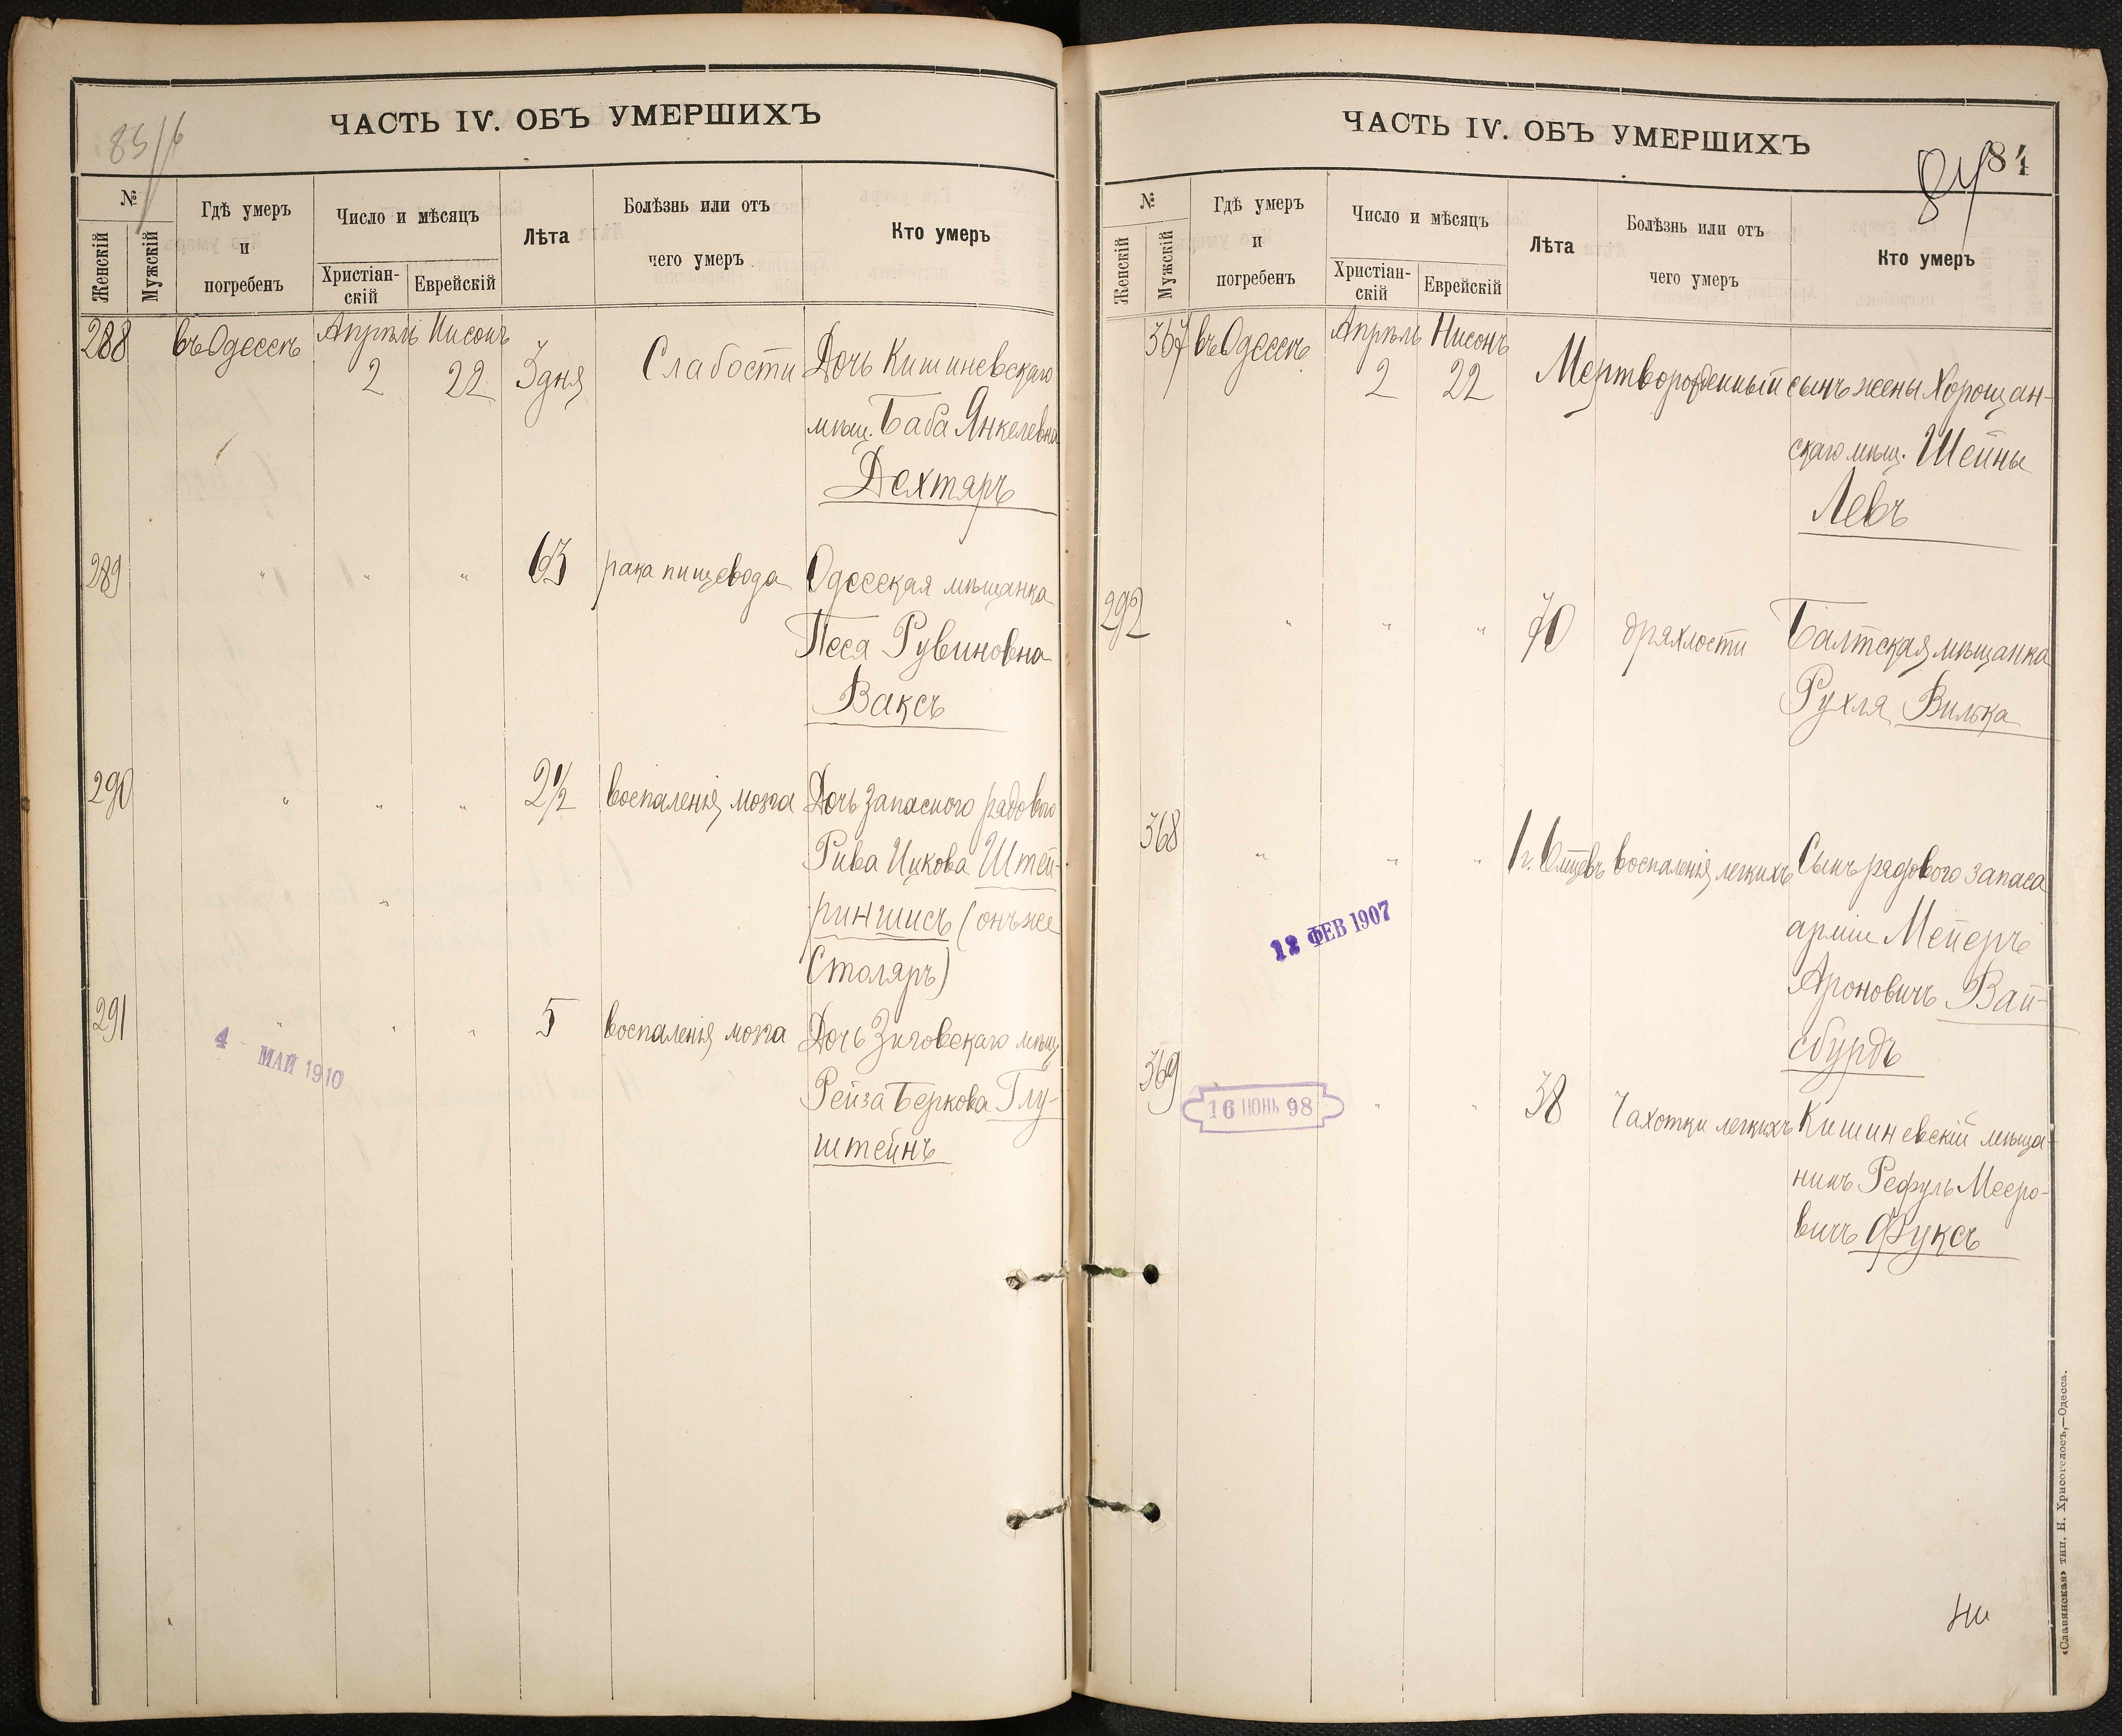 ЧАСТЬ IV. ОБЪ УМЕРШИХЪ
№
Женскій
Мужскій
Гдѣ умеръ
и
погребенъ
Число и мѣсяцъ
Христіан-
скій
Еврейскій
Лѣта
Болѣзнь или отъ
чего умеръ
Кто умеръ
288 въ Одессѣ Апрѣль 2 Нисонъ 22 3 дня Слабости Дочь Кишиневскаго
мѣщ. Баба Янкелевна
Дехтяръ
289 " " " 63 рака пищевода Одесская мѣщанка
Песя Рувиновна
Ваксъ
290 " " " 2 1/2 воспаленія мозга Дочь запасного рядового
Рива Ицкова Штей-
риншисъ (онъ же
Столяръ)
291 " " " 5 воспаленія мозга Дочь Зиговскаго мѣщ.
Рейза Беркова Глу-
штейнъ
4 МАЙ 1910
ЧАСТЬ IV. ОБЪ УМЕРШИХЪ
84
84
№
Женскій
Мужскій
Гдѣ умеръ
и
погребенъ
Число и мѣсяцъ
Христіан-
скій
Еврейскій
Лѣта
Болѣзнь или отъ
чего умеръ
Кто умеръ
367 въ Одессѣ Апрѣль 2 Нисонъ 22 Мертворожденный сынъ жены Хорощан-
скаго мѣщ. Шейны
Левъ
292 " " " 70 дряхлости Балтская мѣщанка
Рухля Вилька
368 " " " 1 г. 6 мѣсцвъ воспаленія легкихъ Сынъ рядового запаса
арміи Мейеръ
Ароновичъ Вай-
сбурдъ
12 ФЕВ 1907
369 " " 38 Чахотки легкихъ Кишиневскій мѣща-
нинъ Рефуль Мееро-
вичъ Фуксъ
16 ІЮНЬ 98
«Славянская» тип. Н. Хрисогелосъ,—Одесса.